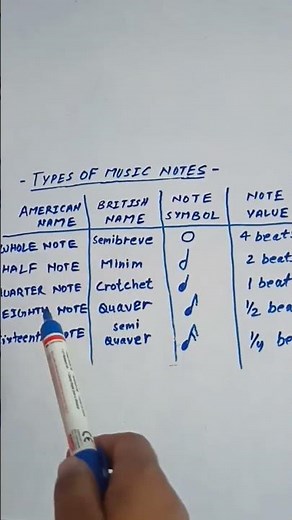 - TYPES OF MUSIC NOTES -
AMERICAN NAME BRITISH NAME NOTE SYMBOL NOTE VALUE
WHOLE NOTE Semibreve 4 beats
HALF NOTE Minim 2 beats
QUARTER NOTE Crotchet 1 beat
EIGHTH NOTE Quaver 1/2 bea
Sixteenth NOTE semi Quaver 1/4 be